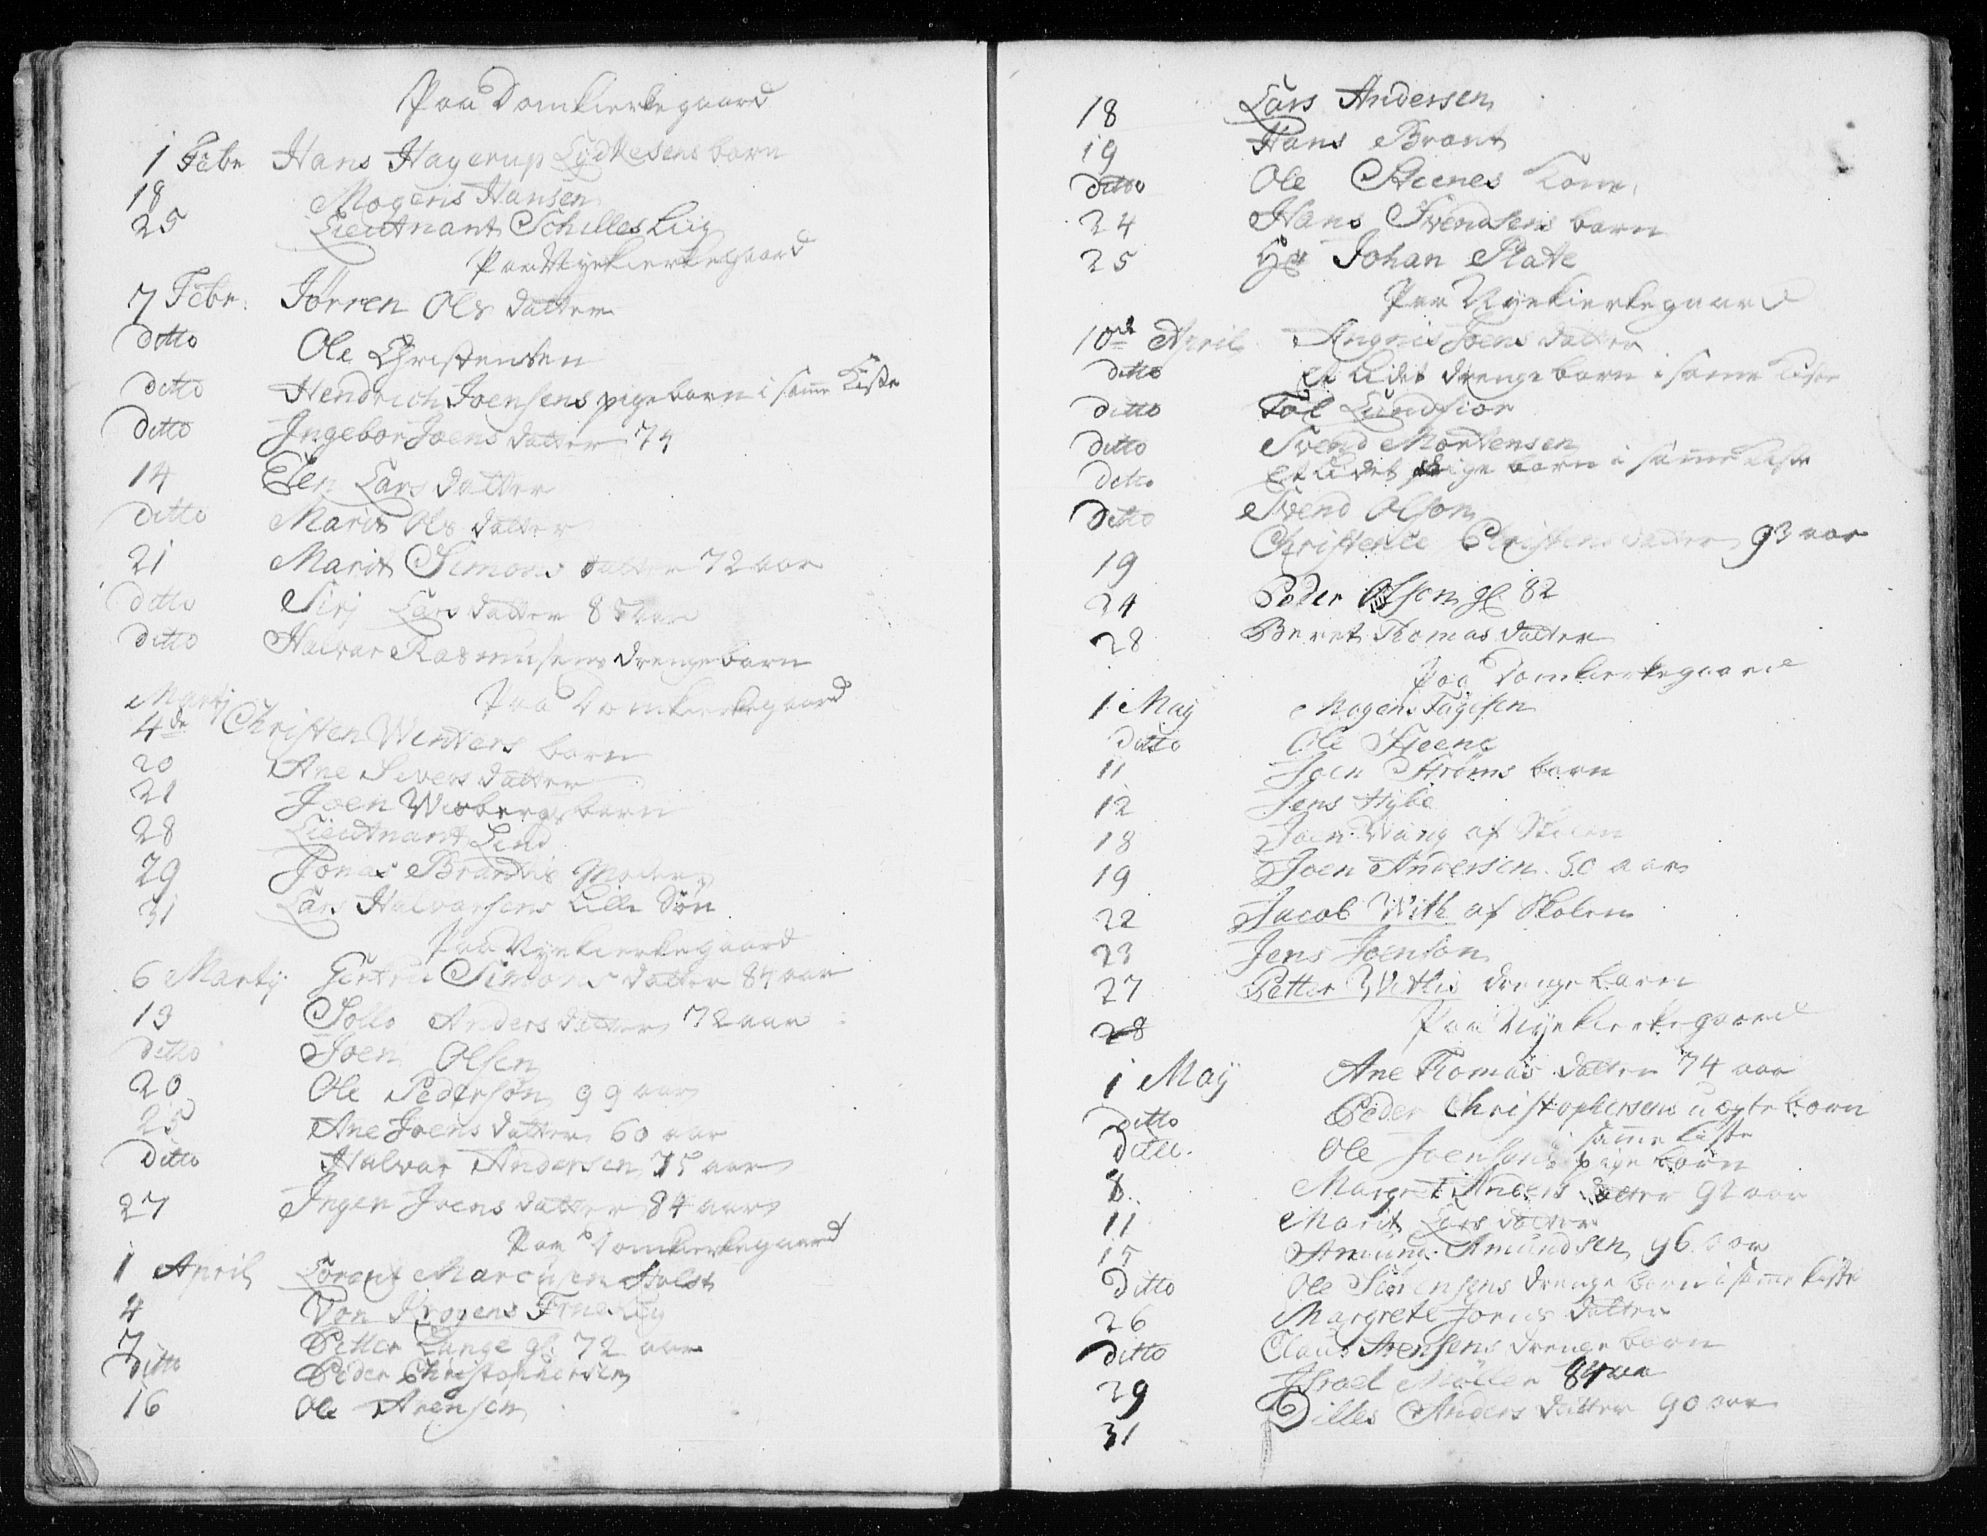 Paa Domkierkegaard
1 Febr Hans Hagerup Lydkesens barn
18 Mogens Hansen
25 Lieutnant Schilles Liig
Paa Nyekierkegaard
7 Febr. Jørren Ols datter
ditto Ole Christensen
ditto Hendrich Joensens pigebarn i samme Kiste
ditto Ingebor Joens datter 74
14 Elen Lars datter
ditto Marit Ols datter
21 Marit Simons datter 72 aar
ditto Sirj Lars datter 8 aar
ditto Halvar Rasmusens drengebarn
Martÿ Paa Domkierkegaard
4de Christen Winters barn
20 Ane Sivers datter
21 Joen Wibergs barn
28 Lieutnant Lind
29 Jonas Brandts
31 Lars Halvorsens lille Søn
Paa Nyekierkegaard
6 Martÿ Gertru Simons datter 84 aar
13 Anders datter 72 aar
ditto Joen Olsen
20 Ole Pedersøn 99 aar
25 Ane Joens datter 60 aar
ditto Halvar Andersen 75 aar
27 Ingen Joens datter 84 aar
Paa Domkierkegaard
1 April Lorent Marcusen Holst
4 Von Krogens Frue Liig
7 Petter Lange gl. 72 aar
ditto Peder Christophersen
16 Ole Arensen
18 Lars Andersen
19 Hans Brant
ditto Ole Steenes Kone
24 Hans Svendsens barn
25 Hr Johan Plate
Paa Nyekierkegaard
10de April Angnis Joens datter
ditto et lidet drenge barn i samme Kiste
ditto Lundfior
ditto Svend Mortensen
ditto et lidet pige barn i samme Kiste
ditto Svend Olson
19 Christense Christens datter 93 aar
24 Peder Olsen gl. 82
28 Beret Thomas datter
Paa Domkierkegaard
1 May Mogens Fugisen
ditto Ole Steene
11 Joen Strøms barn
12 Jens Hÿbe
18 Joen Wang af Skolen
19 Joen Andersen 50 aar
22 Jacob With af Skolen
23 Jens Joenson
27 Petter Withs drenge barn
28 Paa Nyekierkegaard
1 Maÿ Ane Thomas datter 74 aar
ditto Peder Christophersens uægte barn
samme kiste
ditto Ole Joensens pige barn
8 Margret Anders datter 92 aar
11 Marit Lars datter
15 Amund Amundsen 96 aar
ditto Ole Sørensens drenge barn i samme kiste
26 Margrete Joens datter
ditto Claus Arensens drenge barn
29 Israel Møller 84 aar
31 Silles Anders datter 90 aar